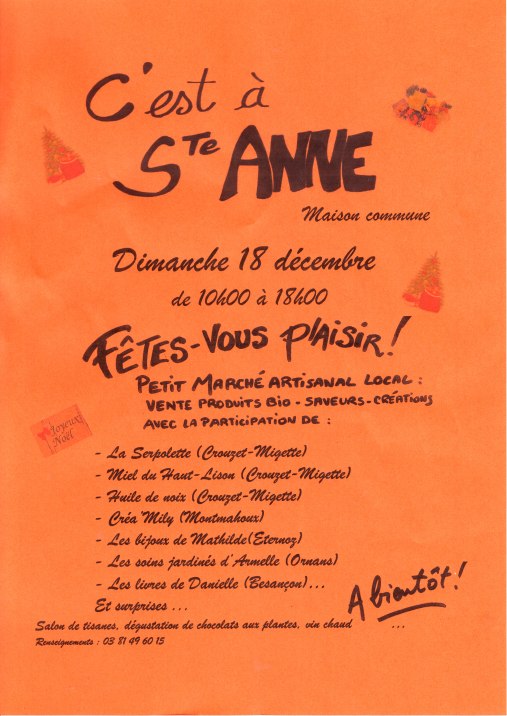 C'est à
Ste ANNE
Maison commune
Dimanche 18 décembre
de 10h00 à 18h00
FÊTES-VOUS PLAISIR!
PETIT MARCHÉ ARTISANAL LOCAL :
VENTE PRODUITS BIO - SAVEURS - CRÉATIONS
AVEC LA PARTICIPATION DE :
Joyeux
Noël
- La Serpolette (Crouzet-Migette)
- Miel du Haut-Lison (Crouzet-Migette)
- Huile de noix (Crouzet-Migette)
- Créa'Mily (Montmahoux)
- Les bijoux de Mathilde(Eternoz)
- Les soins jardinés d'Armelle (Ornans)
- Les livres de Danielle (Besançon)...
Et surprises ...
A bientôt!
Salon de tisanes, dégustation de chocolats aux plantes, vin chaud ...
Renseignements : 03 81 49 60 15